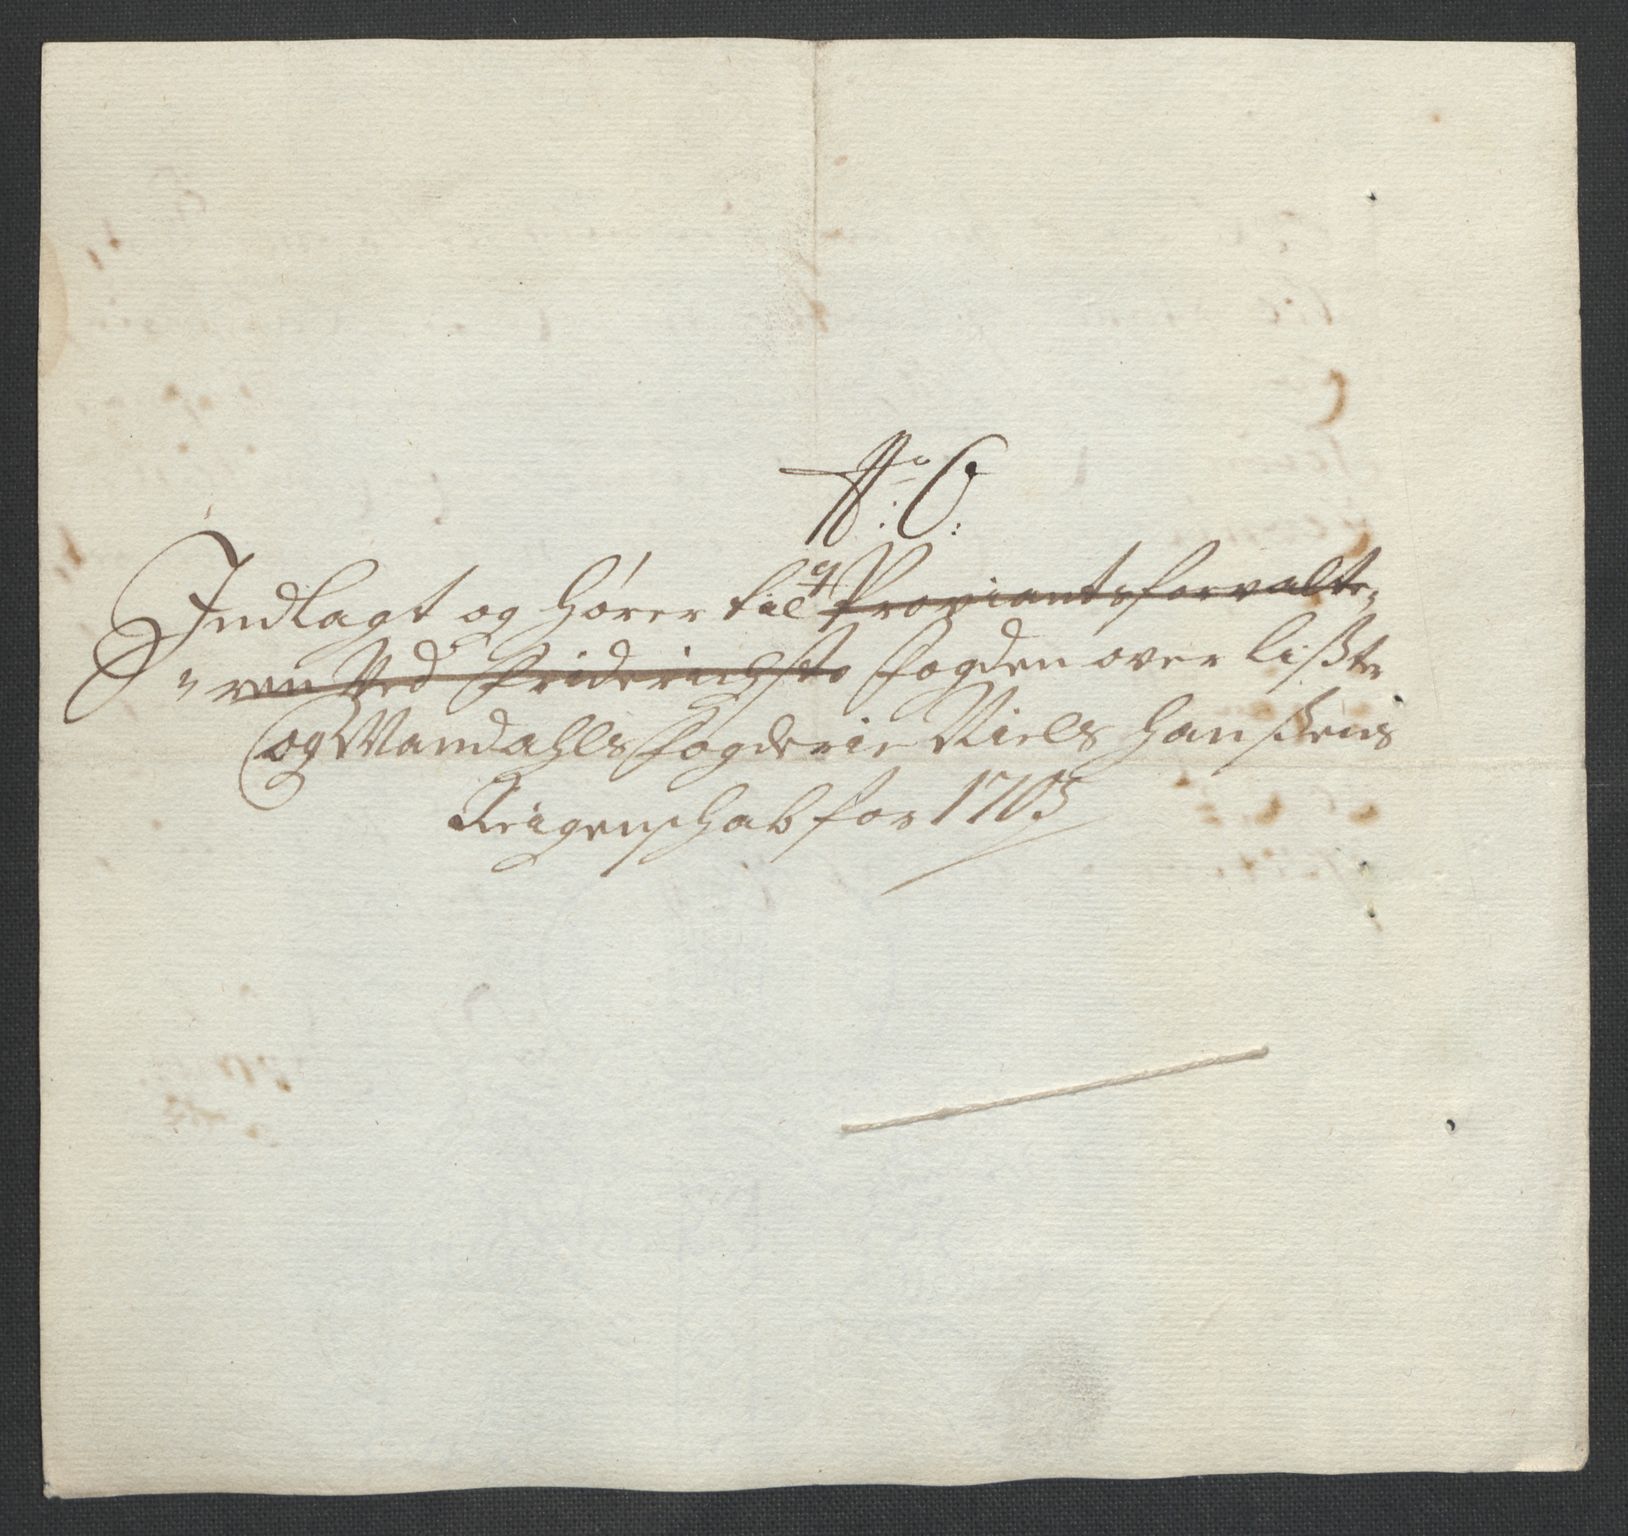 No. 6:
Indlagt og hører til Proviantsforvalte-
ren Ved Friderichsts fogden over lißte
og Mandahls Fogderie Niels Hanßens
Reigenschab for 1703